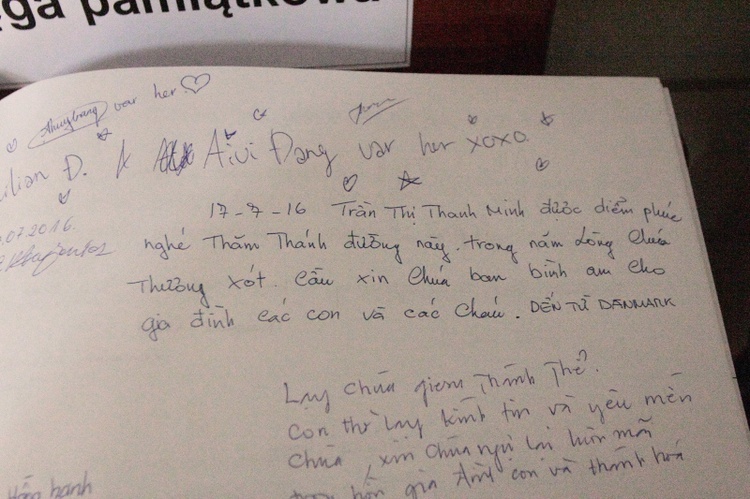 ęga pamiątkowa
thuytrang var her
Lilian Đ. K Aivi Đang var her xoxo
.07.2016.
17-7-16 Trần Thị Thanh Minh được diểm phúc
nghé Thăm Thánh đường này. trong năm Lòng Chúa
Thương xót. Cầu xin Chúa ban bình an cho
gia đình các con và các cháu. DẾN TỪ DANMARK
Lạy Chúa giesu Thánh Thể.
con thờ lạy kính tin và yêu mến
Chúa, xin Chúa ngự lại luôn mãi
hồn gia đình con và thánh hoá
hạnh